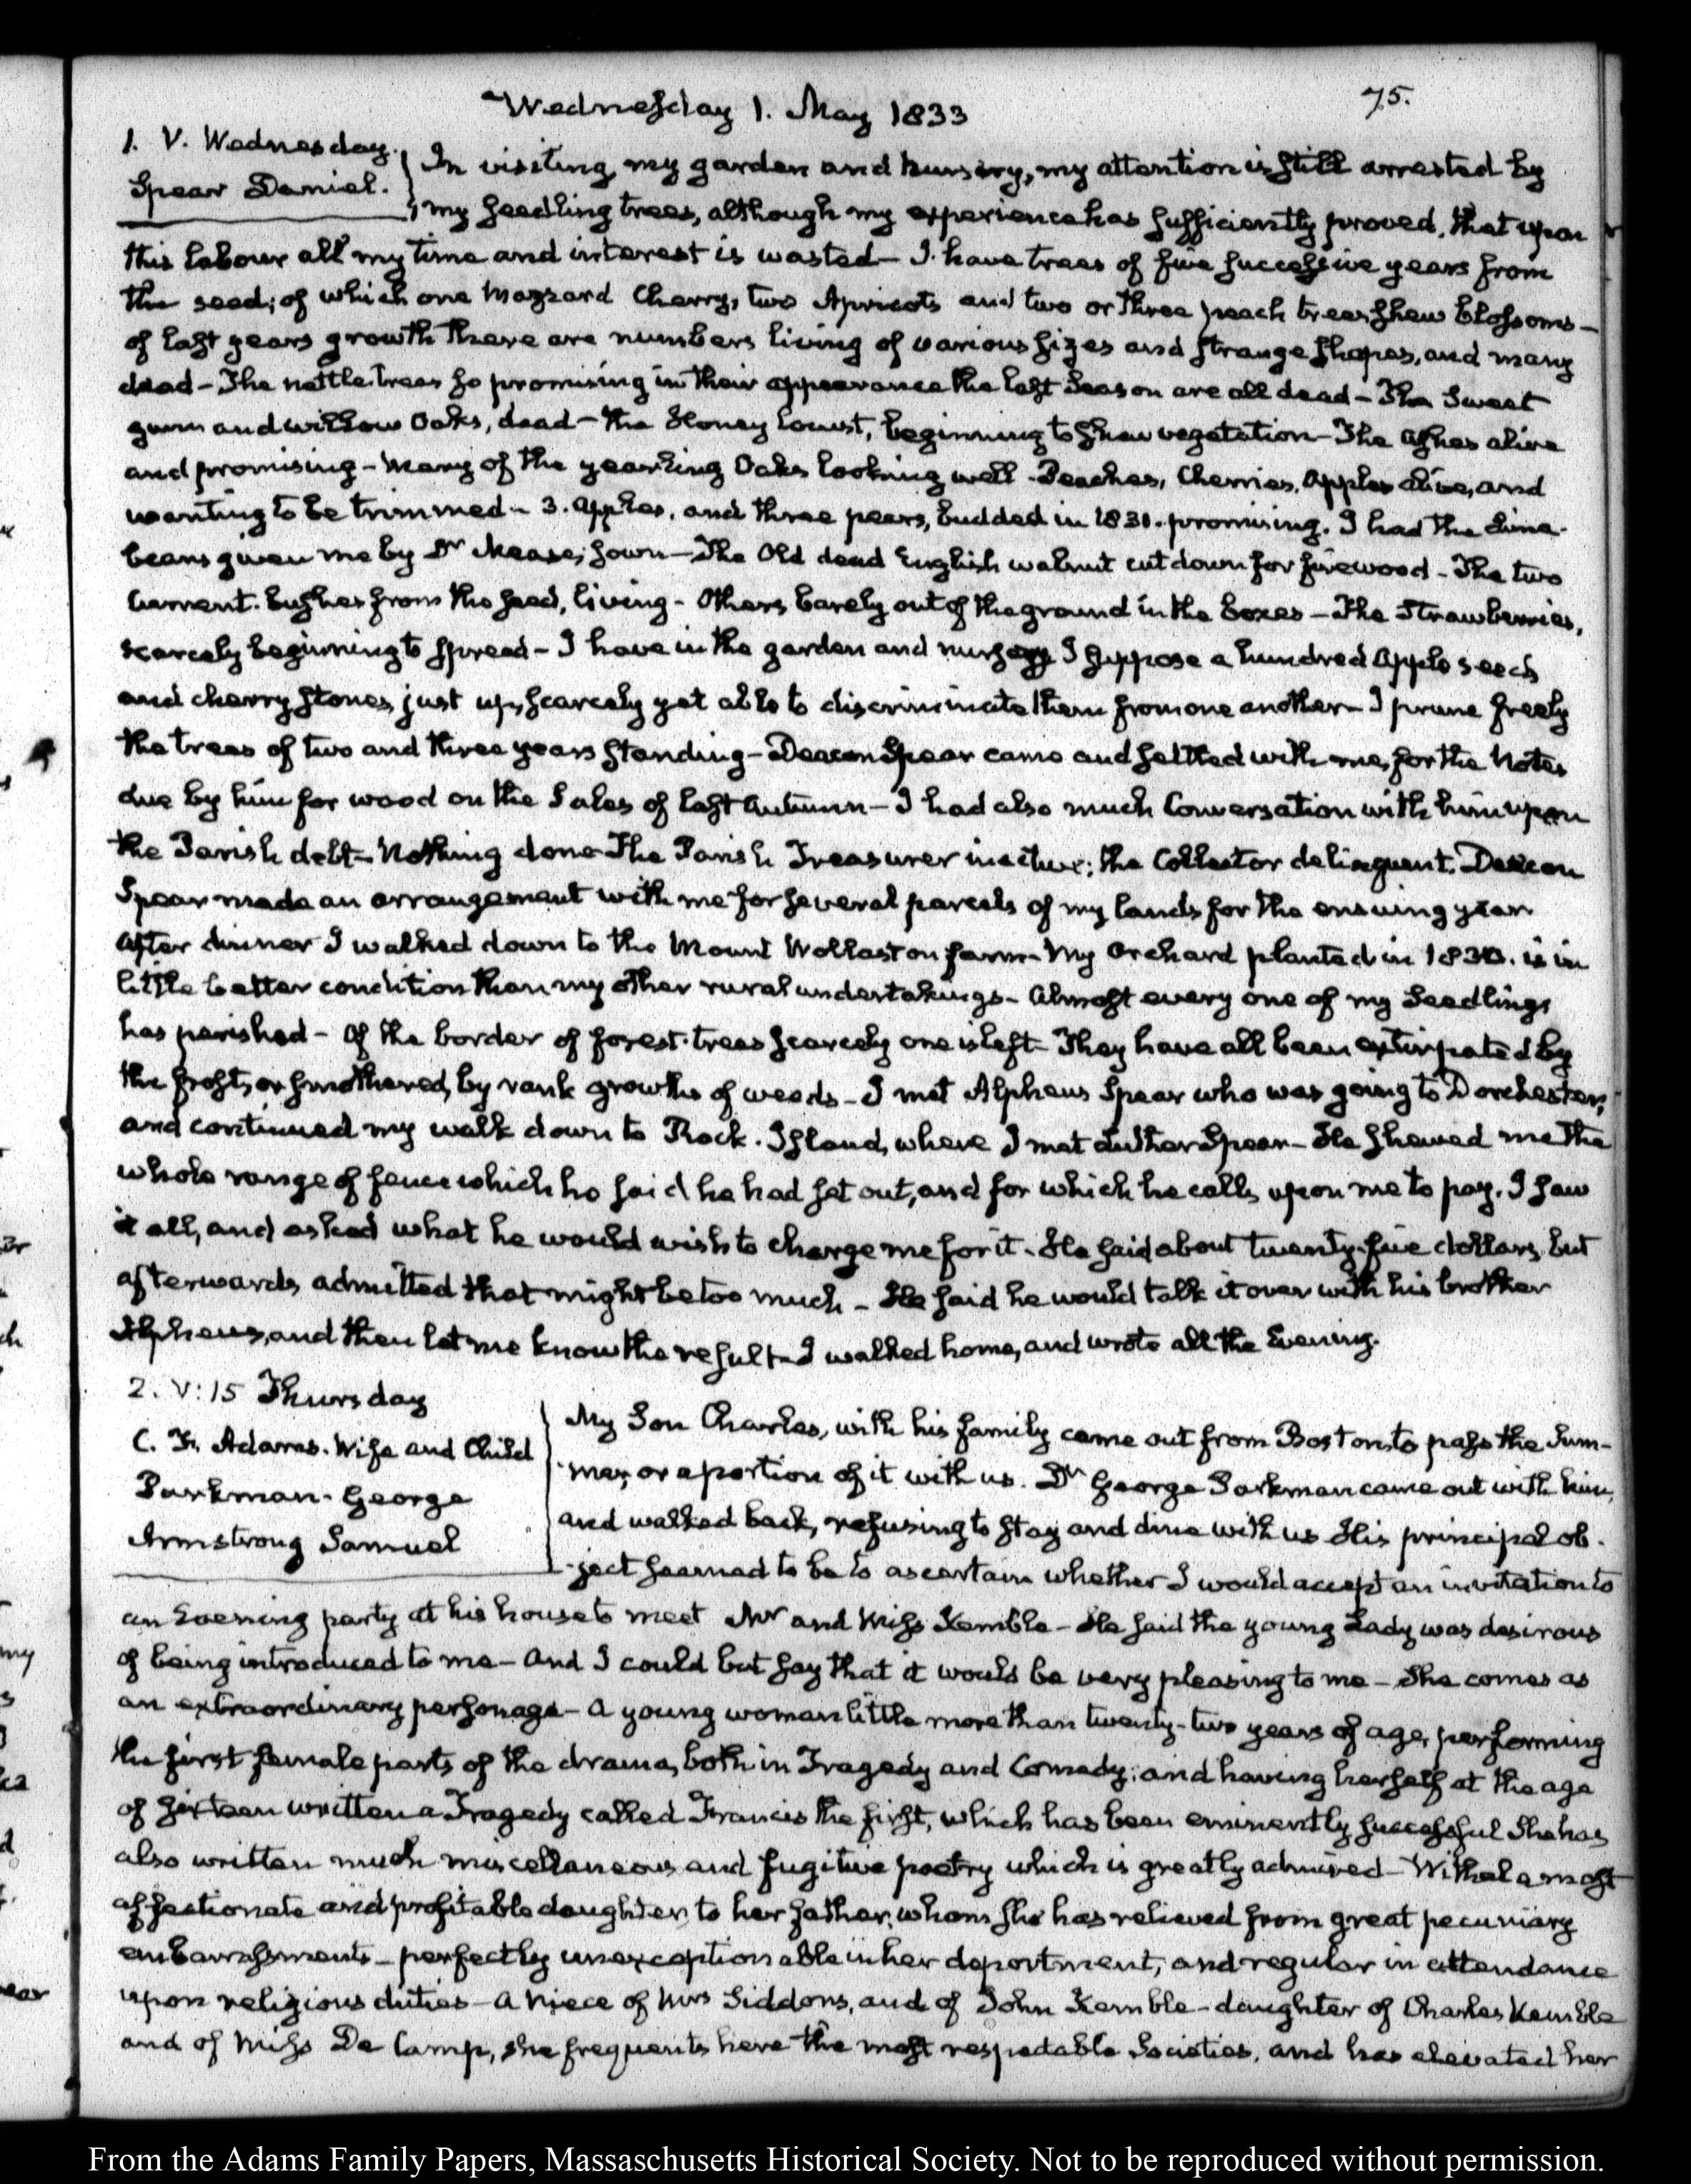 Wednesday 1. May 1833
75.
1. V. Wednesday.
Spear Daniel.
In visiting my garden and nursery, my attention is still arrested by
my seedling trees, although my experience has sufficiently proved, that upon
this labour all my time and interest is wasted— I have trees of five successive years from
the seed; of which one Mazzard Cherry, two Apricots and two or three peach trees shew blossoms—
of last years growth there are numbers living of various sizes and strange shapes, and many
dead— The nettle trees so promising in their appearance the last Season are all dead— The Sweet
gum and willow Oaks, dead— the Honey locust, beginning to shew vegetation— The Ashes alive
and promising— Many of the yearling Oaks looking well. Peaches, Cherries, Apples alive, and
wanting to be trimmed— 3. apples, and three pears, budded in 1831. promising. I had the Lima-
beans given me by Dr Mease, sown— The Old dead English walnut cut down for firewood— The two
currant-bushes from the seed, living— Others barely out of the ground in the boxes— The Strawberries,
scarcely beginning to spread— I have in the garden and nursery I suppose a hundred Apple seeds
and cherry stones, just up, scarcely yet able to discriminate them from one another— I prune freely
the trees of two and three years standing— Deacon Spear came and settled with me, for the Notes
due by him for wood on the Sales of last Autumn— I had also much Conversation with him upon
the Parish debt— Nothing done— The Parish Treasurer inactive; the Collector delinquent. Deacon
Spear made an arrangement with me for several parcels of my lands for the ensuing year
After dinner I walked down to the Mount Wollaston farm— My Orchard planted in 1830. is in
little better condition than my other rural undertakings— Almost every one of my Seedlings
has perished— Of the border of forest-trees scarcely one is left— They have all been extirpated by
the frosts, or smothered, by rank growths of weeds— I met Alpheus Spear who was going to Dorchester;
and continued my walk down to Rock-Island, where I met Luther Spear— He shewed me the
whole range of fence which he said he had set out, and for which he calls upon me to pay. I saw
it all, and asked what he would wish to charge me for it. He said about twenty-five dollars, but
afterwards admitted that might be too much— He said he would talk it over with his brother
Alpheus, and then let me know the result— I walked home, and wrote all the Evening.
2. V:15 Thursday
C. F. Adams. Wife and Child
Parkman. George
Armstrong Samuel
My Son Charles, with his family came out from Boston, to pass the Sum-
mer, or a portion of it with us. Dr George Parkman came out with him,
and walked back, refusing to stay and dine with us His principal ob-
ject seemed to be to ascertain whether I would accept an invitation to
an Evening party at his house to meet Mr and Miss Kemble— He said the young Lady was desirous
of being introduced to me— And I could but say that it would be very pleasing to me— She comes as
an extraordinary personage— A young woman little more than twenty-two years of age, performing
the first female parts of the drama, both in Tragedy and Comedy; and having herself at the age
of sixteen written a Tragedy called Francis the first, which has been eminently successful She has
also written much miscellaneous and fugitive poetry which is greatly admired— Withal a most
affectionate and profitable daughter, to her father, whom she has relieved from great pecuniary
embarrassments— perfectly unexceptionable in her deportment, and regular in attendance
upon religious duties— A niece of Mrs Siddons, and of John Kemble— daughter of Charles Kemble
and of Miss De Camp, she frequents here the most respectable Societies, and has elevated her
From the Adams Family Papers, Massachusetts Historical Society. Not to be reproduced without permission.